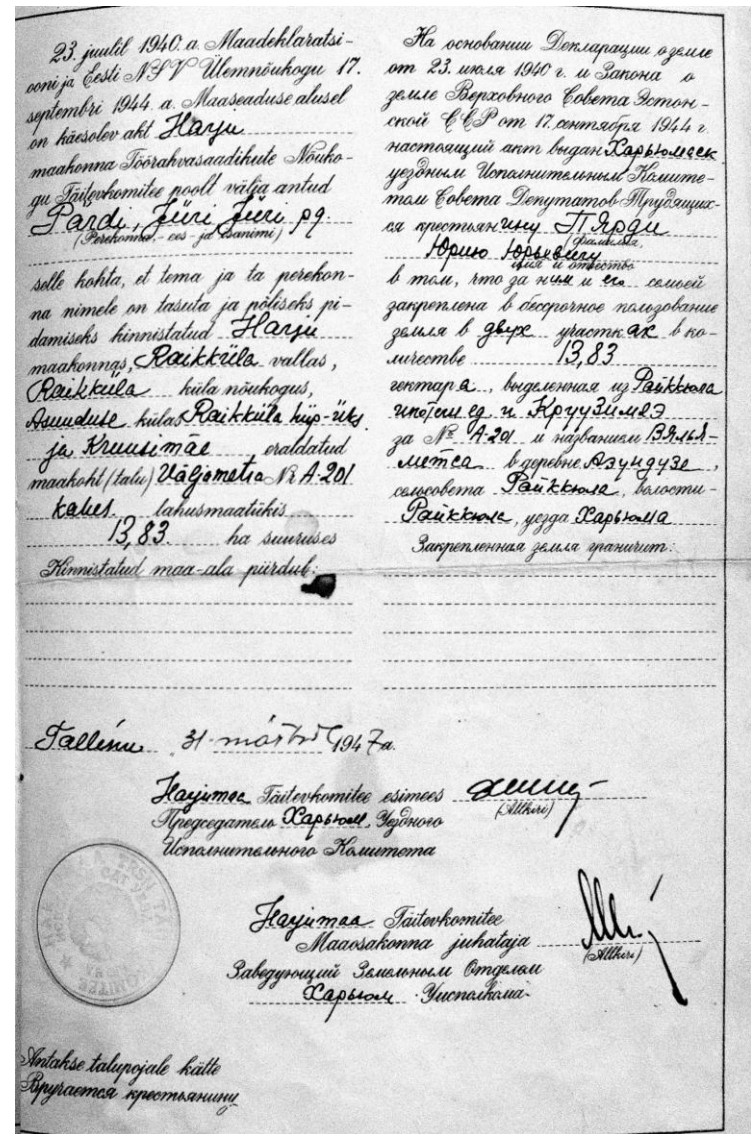 23. juulil 1940. a. Maadeklaratsi-
ooni ja Eesti NSV Ülemnõukogu 17.
septembri 1944. a. Maaseaduse alusel
on käesolev akt Harju
maakonna Töörahvasaadikute Nõuko-
gu Täitevkomitee poolt välja antud
Pärdi, Jüri Jüri pg.
(Perekonna-, ees- ja isanimi)
selle kohta, et tema ja ta perekon-
na nimele on tasuta ja põliseks pi-
damiseks kinnistatud Harju
maakonnas, Raikküla vallas,
Raikküla küla nõukogus,
Asunduse külas Raikküla hüp-üks.
ja Kruusimäe eraldatud
maakoht (talu) Väljametsa № A-201
kahes lahusmaatükis
13,83 ha suuruses
Kinnistatud maa-ala piirdub:
На основании Декларации о земле
от 23. июля 1940 г. и Закона о
земле Верховного Совета Эстон-
ской ССР от 17. сентября 1944 г.
настоящий акт выдан Харьюмаск
уездным Исполнительным Комите-
том Совета Депутатов Трудящих-
ся крестьянину Пярди
(фамилия,
Юрию Юрьевичу
имя и отчество
в том, что за ним и его семьей
закреплена в бессрочное пользование
земля в двух участках в ко-
личестве 13,83
гектара, выделенная из Райккюла
ипотеч ед. и Круузимяэ
за № A-201 и названием Вялья-
метса в деревне Азундузе,
сельсовета Райккюла, волости
Райккюла, уезда Харьюмаа
Закрепленная земля граничит:
Tallinn 31. 1947 a.
Harjumaa Täitevkomitee esimees
(Allkiri)
Председатель Харьюм. Уездного
Исполнительного Комитета
Harjumaa Täitevkomitee
Maaosakonna juhataja
(Allkiri)
Заведующий Земельным Отделом
Харьюм Уисполкома
Antakse talupojale kätte
Вручается крестьянину